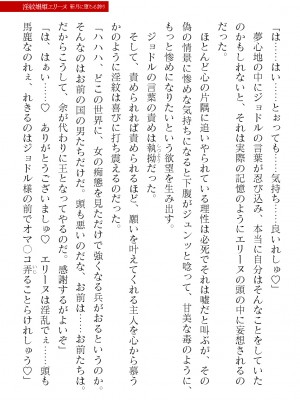 淫紋娼姫エリーヌ 新月に堕ちる誇り
「は……はい……、とぉっても……気持ち……良いれしゅ♡」
夢心地の中にジョドルの言葉が忍び込み、本当に自分はそんなことをしてい
ないのに、それは実際の記憶のようにエリーヌの頭の中に妄想されるの
だった。
ほとんど心の片隅に追いやられている理性は必死でそれは嘘だと叫ぶが、
偽の情景に惨めな気持ちになると下腹がジュンッと唸って、甘美な毒のように、
もっと惨めになりたいという欲望を生み出す。
ジョドルの言葉の責めは執拗だった。
そして、責められれば責められるほど、願いを叶えてくれる主人を心から慕う
ように淫紋は喜びに打ち震えるのだった。
「ハハハ、どこの世界に、女の痴態を見ただけで強くなる兵がおるというのか。
そんなのはお前の国の男たちだけだ。頭も悪いのだな、お前は……お前たちは。
だからこうして、余が代わりに王となってやるのだ。感謝するがよいぞ」
「は、はぁい……♡ ありがとうございましゅ♡ エリーヌは淫乱でぇ……頭も
馬鹿なのれぇ、れきるのはジョドル様の前でオマ○コ弄ることらけれしゅう♡」